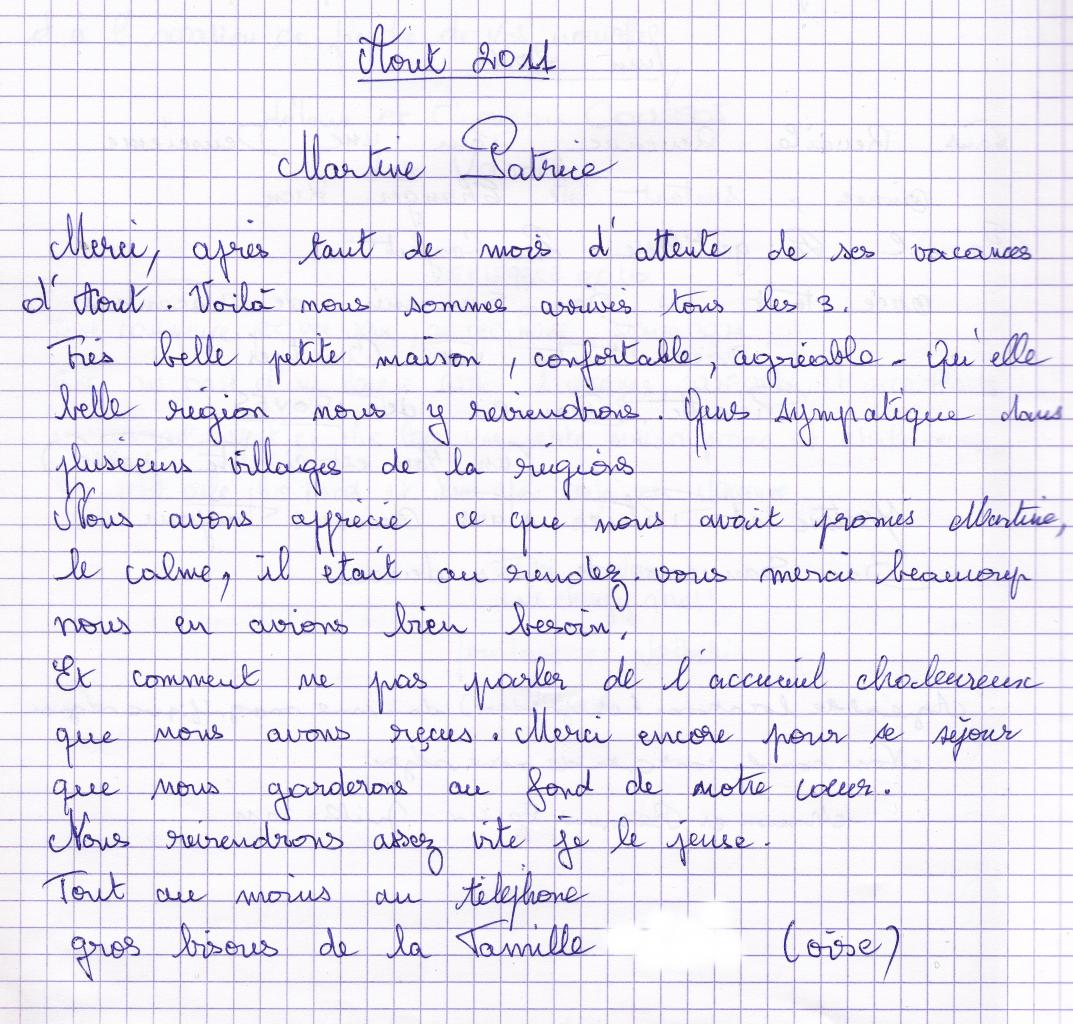 Aout 2011
Martine Patrice
Merci, après tant de mois d'attente de ses vacances
d'Aout. Voilà nous sommes arrivés tous les 3.
Très belle petite maison, confortable, agréable - Qu'elle
belle région nous y reviendrons. Gens sympatique dans
plusieurs villages de la régions
Nous avons apprécié ce que nous avait promis Martine,
le calme, il était au rendez-vous merci beaucoup
nous en avions bien besoin,
Et comment ne pas parler de l'accueil chaleureux
que nous avons reçus. Merci encore pour se séjour
que nous garderons au fond de notre coeur.
Nous reviendrons assez vite je le pense.
Tout au moins au téléphone
gros bisous de la Famille (oise)